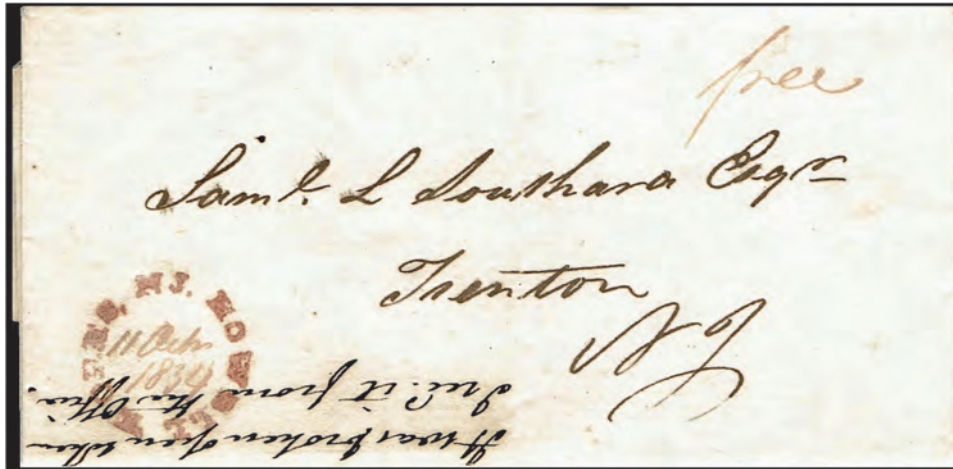 free
Saml. L Southard Esqr
Trenton
NJ
NJ. HOWELL
11 Octr
1834
It was broken open when
I rec. it from the Office.